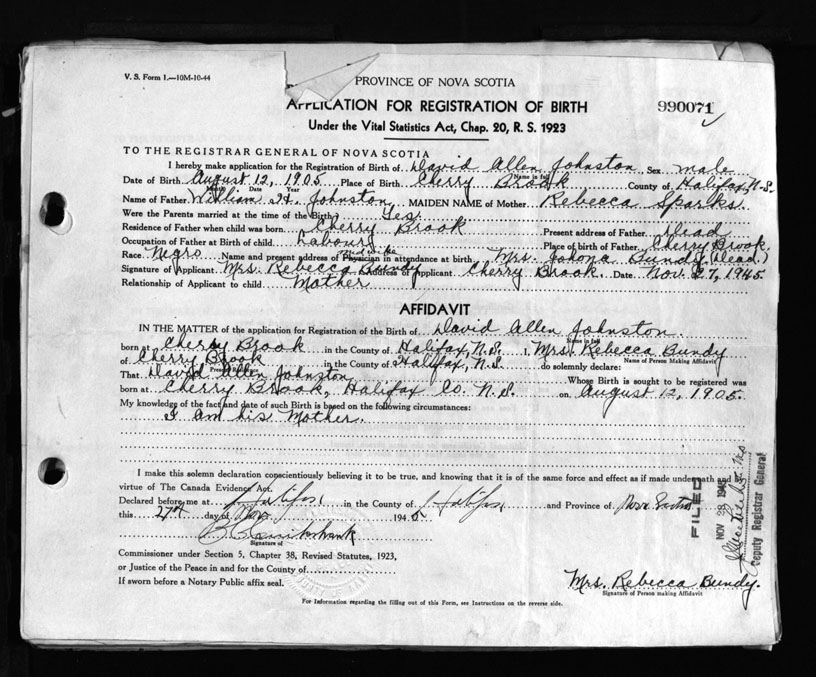 V. S. Form 1.—10M-10-44
PROVINCE OF NOVA SCOTIA
APPLICATION FOR REGISTRATION OF BIRTH
990071
Under the Vital Statistics Act, Chap. 20, R. S. 1923
TO THE REGISTRAR GENERAL OF NOVA SCOTIA
I hereby make application for the Registration of Birth of David Allen Johnston Sex male
Name in full
Date of Birth August 12, 1905 Place of Birth Cherry Brook County of Halifax N.S.
Month Date Year
Name of Father William H. Johnston, MAIDEN NAME of Mother Rebecca Sparks.
Were the Parents married at the time of the Birth? Yes.
Residence of Father when child was born Cherry Brook Present address of Father Dead
Occupation of Father at Birth of child Labourer Place of birth of Father Cherry Brook.
Race Negro Name and present address of Physician in attendance at birth Mrs. Bundy (Dead.)
midwife
Signature of Applicant Mrs. Rebecca Bundy Address of Applicant Cherry Brook. Date Nov. 27, 1945
Relationship of Applicant to child Mother
AFFIDAVIT
IN THE MATTER of the application for Registration of the Birth of David Allen Johnston.
Name in full
born at Cherry Brook in the County of Halifax, N.S. I, Mrs. Rebecca Bundy
Name of Person Making Affidavit
of Cherry Brook in the County of Halifax, N.S. do solemnly declare:
Present
That David Allen Johnston Whose Birth is sought to be registered was
born at Cherry Brook, Halifax Co. N.S. on August 12, 1905.
My knowledge of the fact and date of such Birth is based on the following circumstances:
I am his Mother.
I make this solemn declaration conscientiously believing it to be true, and knowing that it is of the same force and effect as if made under oath and by
virtue of The Canada Evidence Act.
Declared before me at Halifax in the County of Halifax and Province of Nova Scotia
this 27th day of Nov 1945
Signature of
Commissioner under Section 5, Chapter 38, Revised Statutes, 1923,
or Justice of the Peace in and for the County of
If sworn before a Notary Public affix seal.
Mrs. Rebecca Bundy.
Signature of Person making Affidavit
For Information regarding the filling out of this Form, see Instructions on the reverse side.
FILED
NOV 28 1945
Deputy Registrar General